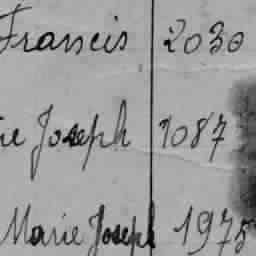 Francis 2030
ie Joseph 1087
Marie Joseph 1975